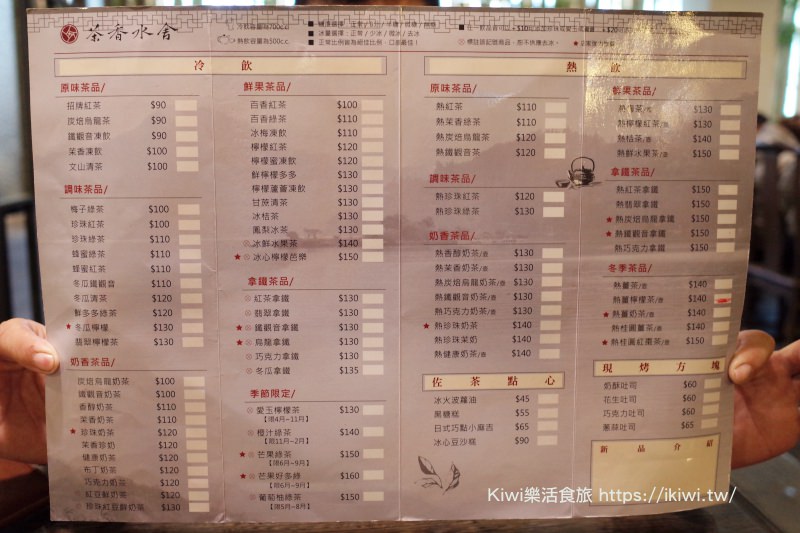 茶香水舍
冷飲
原味茶品/
招牌紅茶 $90
炭焙烏龍茶 $90
鐵觀音凍飲 $90
茉香凍飲 $100
文山清茶 $100
調味茶品/
梅子綠茶 $100
珍珠紅茶 $100
珍珠綠茶 $110
蜂蜜綠茶 $110
蜂蜜紅茶 $110
冬瓜鐵觀音 $110
冬瓜清茶 $120
鮮多多綠茶 $120
★冬瓜檸檬 $130
翡翠檸檬茶 $130
奶香茶品/
炭焙烏龍奶茶 $100
鐵觀音奶茶 $100
香醇奶茶 $110
茉香奶茶 $110
★珍珠奶茶 $120
茉香珍奶 $120
健康奶茶 $120
布丁奶茶 $120
巧克力奶茶 $120
紅豆鮮奶茶 $120
珍珠紅豆鮮奶茶 $130
鮮果茶品/
百香紅茶 $100
百香綠茶 $110
冰梅凍飲 $110
檸檬紅茶 $110
檸檬蜜凍飲 $110
鮮檸檬多多 $130
檸檬蘆薈凍飲 $130
甘蔗清茶 $130
冰桔茶 $130
鳳梨冰茶 $130
冰鮮水果茶 $140
★冰心檸檬芭樂 $150
拿鐵茶品/
紅茶拿鐵 $130
翡翠拿鐵 $130
★鐵觀音拿鐵 $130
★烏龍拿鐵 $130
巧克力拿鐵 $130
冬瓜拿鐵 $135
季節限定/
愛玉檸檬茶 $130
【限4月~11月】
橙汁綠茶 $140
【限11月~2月】
★芒果綠茶 $150
【限6月~9月】
★芒果好多綠 $160
【限6月~9月】
葡萄柚綠茶 $150
【限5月~8月】
熱飲
原味茶品/
熱紅茶 $110
熱茉香綠茶 $110
熱炭焙烏龍茶 $120
熱鐵觀音茶 $120
調味茶品/
熱珍珠紅茶 $120
熱珍珠綠茶 $130
奶香茶品/
熱香醇奶茶/壺 $130
熱茉香奶茶/壺 $130
熱炭焙烏龍奶茶/壺 $130
熱鐵觀音奶茶/壺 $130
熱巧克力奶茶/壺 $130
★熱珍珠奶茶 $140
熱珍珠茉奶 $140
熱健康奶茶/壺 $140
佐茶點心
冰火波蘿油 $45
黑糖糕 $55
日式巧點小麻吉 $65
冰心豆沙糕 $90
鮮果茶品/
$130
熱檸檬紅茶/壺 $130
熱桔茶/壺 $140
熱鮮水果茶/壺 $150
拿鐵茶品/
熱紅茶拿鐵 $150
熱翡翠拿鐵 $150
★熱炭焙烏龍拿鐵 $150
★熱鐵觀音拿鐵 $150
熱巧克力拿鐵 $150
冬季茶品/
熱薑茶/壺 $140
熱薑檸檬茶/壺 $140
★熱薑奶茶/壺 $140
熱桂圓薑茶/壺 $140
★熱桂圓紅棗茶/壺 $150
現烤方塊
奶酥吐司 $60
花生吐司 $60
巧克力吐司 $60
蔥蒜吐司 $65
新品介紹
Kiwi樂活食旅 https://ikiwi.tw/